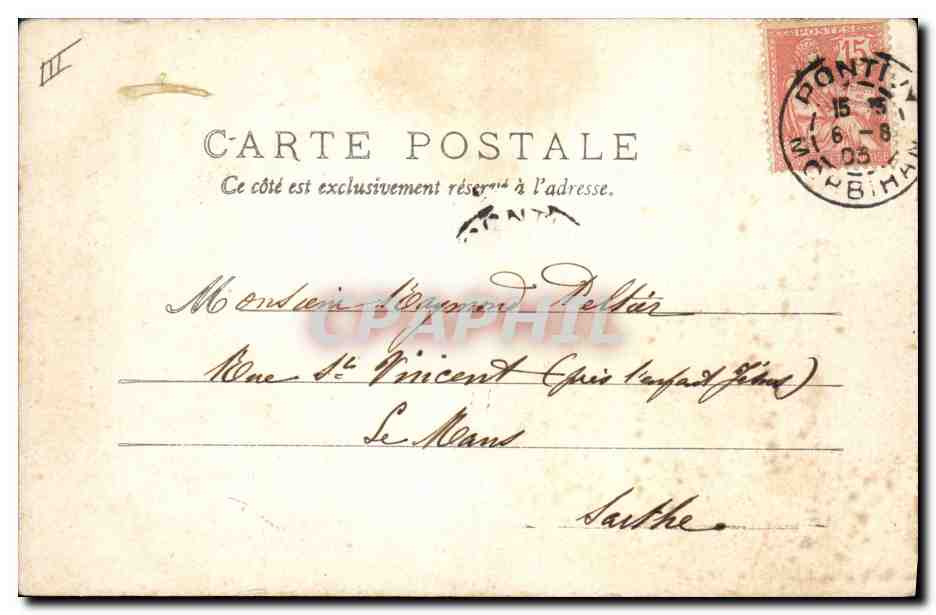 III
POSTES
15
PONTIVY
15 15
6 -6
03
MORBIHAN
CARTE POSTALE
Ce côté est exclusivement réservé à l'adresse.
PONTI
Monsieur Raymond Peltier
CPAPHIL
Rue St Vincent (près l'enfant Jésus)
Le Mans
Sarthe